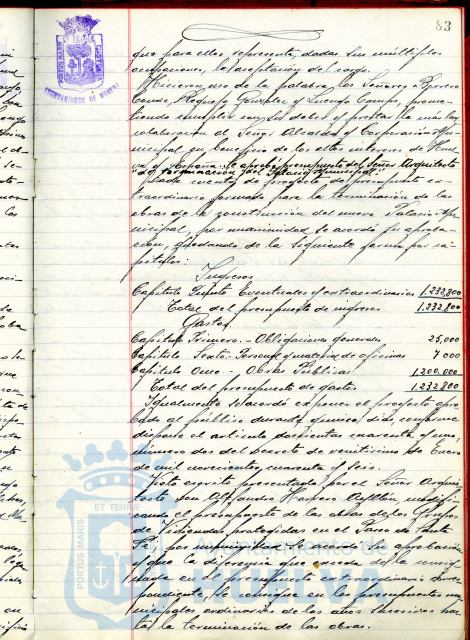 83
PORTUS MARIS
AYUNTAMIENTO DE HUELVA
que para ellos representa, dadas sus múltiples
ocupaciones, la aceptación del cargo.
Hicieron uso de la palabra los Señores Borrero
prome-
tiendo cumplir con su deber y prestar la máxima
colaboración al Señor Alcalde y Corporación Mu-
nicipal en beneficio de los altos intereses de Huel-
va y España. Se aprueba presupuesto del Señor Arquitecto
"de terminación del Palacio Municipal".
Dada cuenta del proyecto de presupuesto ex-
traordinario formado para la terminación de las
obras de la construcción del nuevo Palacio Mu-
nicipal, por unanimidad se acordó su aproba-
ción, quedando de la siguiente forma por ca-
pítulos:
Ingresos
Capítulo Quinto Eventuales y extraordinarios 1.232,800
Total del presupuesto de ingresos 1.232,800
Gastos
Capítulo Primero. - Obligaciones generales 25,000
Capítulo Sexto. Personal y material de oficinas 7 000
Capítulo Once - Obras Públicas 1,200,000
Total del presupuesto de gastos 1.232.800
Igualmente se acordó exponer el proyecto apro-
bado al público durante quince días, conforme
dispone el artículo doscientos cuarenta y uno,
número dos del Decreto de veinticinco de Enero
de mil novecientos cuarenta y seis.
Visto escrito presentado por el Señor Arqui-
tecto Don Alejandro Herrero Ayllón modifi-
cando el presupuesto de las obras de los Grupos
de Viviendas protegidas en el Paseo de Santa
Fé, por unanimidad se acordó su aprobación
y que la diferencia que exceda de la consig-
nada en el presupuesto extraordinario corres-
pondiente, se consigne en los presupuestos mu-
nicipales ordinarios de los años sucesivos has-
ta la terminación de las obras.
PORTUS MARIS ET TERRAE
Ayuntamiento de
HUELVA